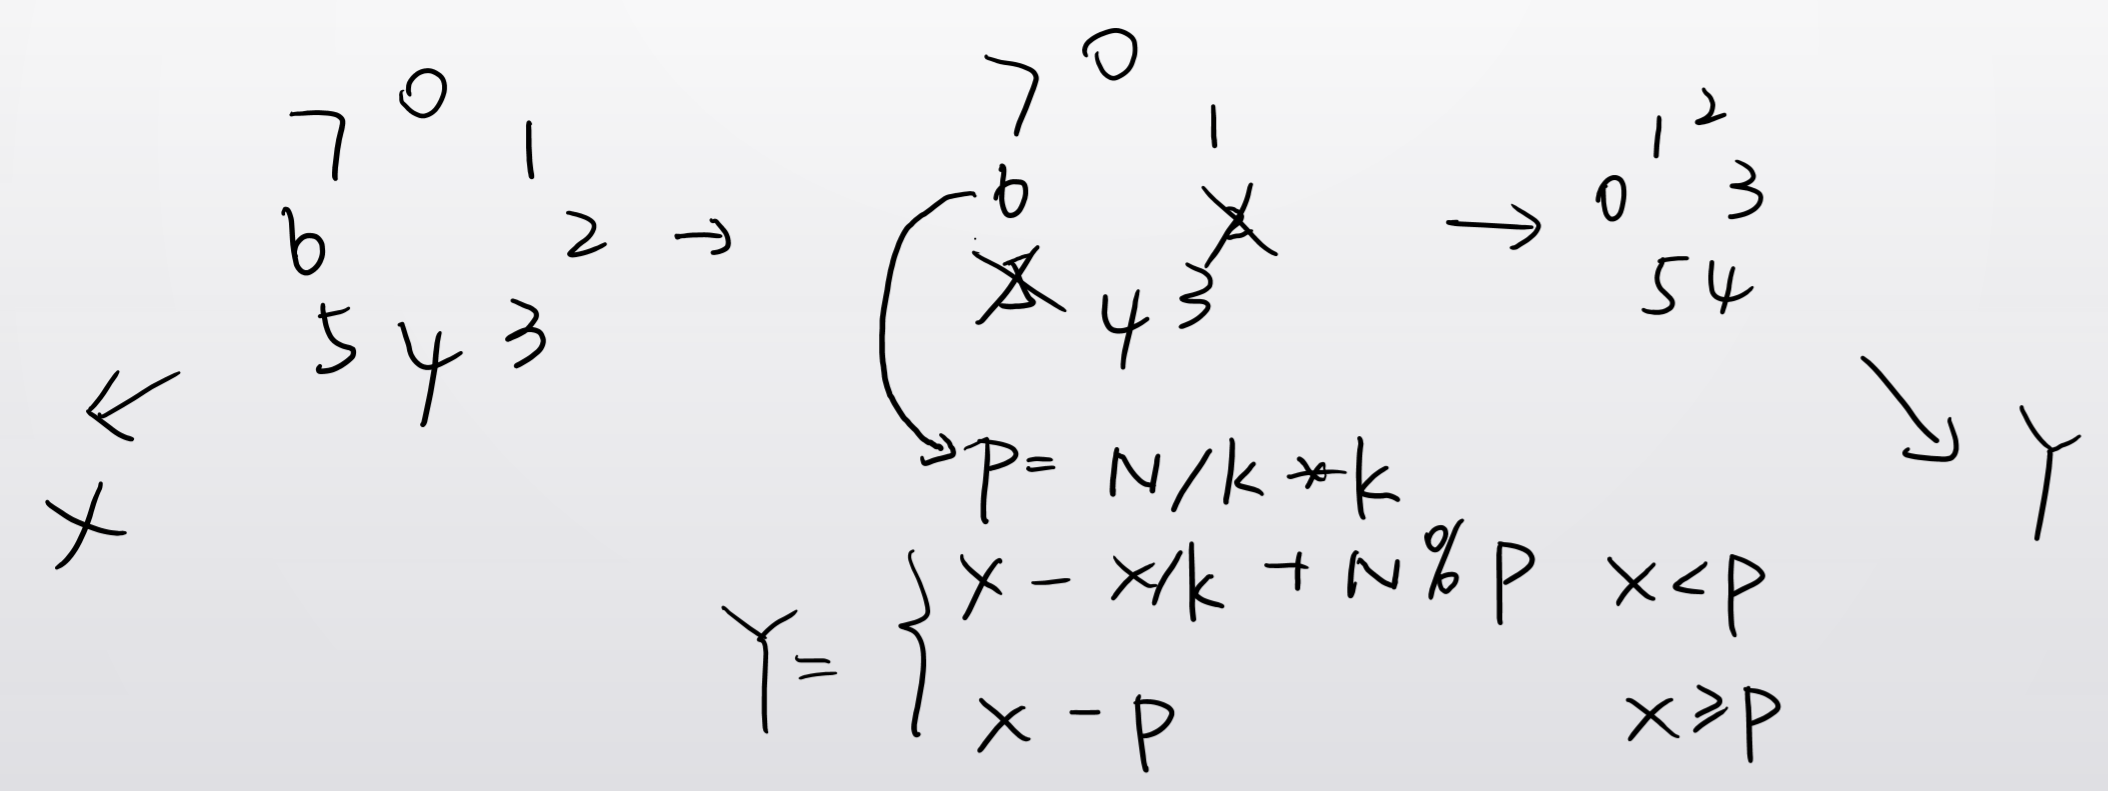 7 0 1
6 2
5 4 3
→
7 0
1
6
4 3
→
1 2
0 3
5 4
X
Y
P = N/k * k
Y = { X - X/k + N % P X < P
X - P X ≥ P